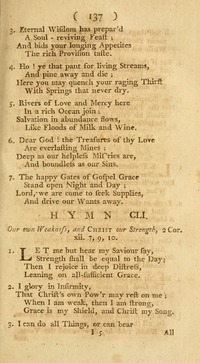 ( 137 )
3. Eternal Wiſdom has prepar'd
A Soul - reviving Feaſt ;
And bids your longing Appetites
The rich Proviſion taſte.
4. Ho ! ye that pant for living Streams,
And pine away and die ;
Here you may quench your raging Thirſt
With Springs that never dry.
5. Rivers of Love and Mercy here
In a rich Ocean join ;
Salvation in abundance flows,
Like Floods of Milk and Wine.
6. Dear God ! the Treaſures of thy Love
Are everlaſting Mines ;
Deep as our helpleſs Miſ'ries are,
And boundleſs as our Sins.
7. The happy Gates of Goſpel Grace
Stand open Night and Day ;
Lord, we are come to ſeek Supplies,
And drive our Wants away.
HYMN CLI.
Our own Weakneſs, and CHRIST our Strength, 2 Cor.
xii. 7, 9, 10.
1. LET me but hear my Saviour ſay,
Strength ſhall be equal to thy Day;
Then I rejoice in deep Diſtreſs,
Leaning on all-ſufficient Grace.
2. I glory in Infirmity,
That Chriſt's own Pow'r may reſt on me ;
When I am weak, then I am ſtrong,
Grace is my Shield, and Chriſt my Song.
3. I can do all Things, or can bear
I 5 All